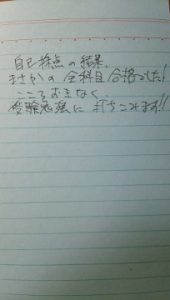 自己採点の結果、
まさかの全科目合格でした!
こころおきなく
受験勉強に打ちこみます!!